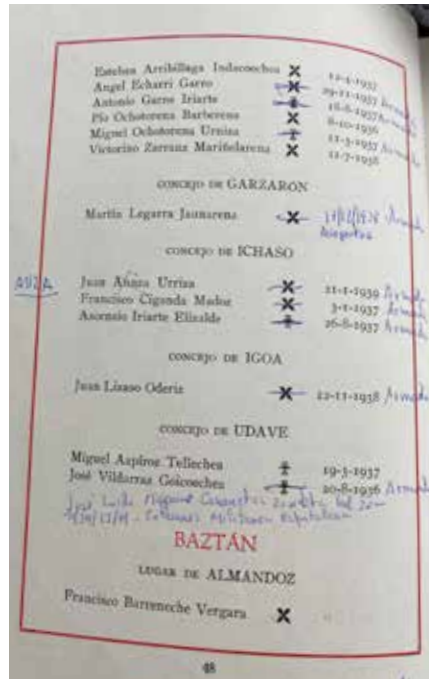 Esteban Arribillaga Indacoechea 12-4-1937
Angel Echarri Garro 29-11-1937 Armada
Antonio Garro Iriarte 18-8-1937 Armada
Pío Ochotorena Barberena 8-10-1936
Miguel Ochotorena Urniza 11-3-1937 Armada
Victorino Zarranz Mariñelarena 11-7-1938
CONCEJO DE GARZARON
Martín Legarra Jaunarena Armada
CONCEJO DE ICHASO
Juan Urriza 21-1-1939 Armada
Francisco Ciganda Madoz 3-1-1937 Armada
Ascensio Iriarte Elizalde 26-8-1937 Armada
CONCEJO DE IGOA
Juan Lizaso Oderiz 22-11-1938 Armada
CONCEJO DE UDAVE
Miguel Azpiroz Tellechea 19-3-1937
José Vildarraz Goicoechea 20-8-1936 Armada
BAZTÁN
LUGAR DE ALMANDOZ
Francisco Barreneche Vergara
48